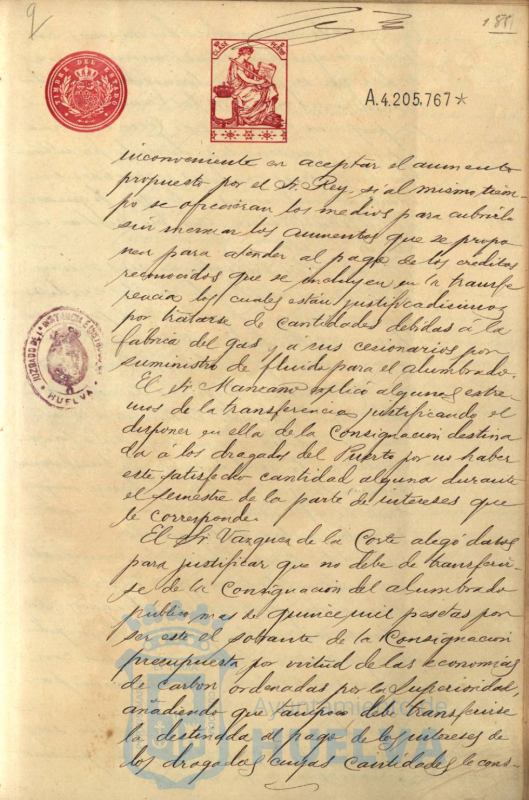 9
188
TIMBRE DEL ESTADO
A.4.205,767*
inconveniente en aceptar el aumento
propuesto por el Sr. Rey, si al mismo tiem-
po se ofrecieran los medios para cubrirlo
sin mermar los aumentos que se propo
nen para atender al pago de los creditos
reconocidos que se incluyen en la transfe
rencia los cuales están justificadisimos
por tratarse de cantidades debidas á la
fabrica del gas y á sus cesionarios por
suministro de fluido para el alumbrado.
El Sr. Manzano esplicó algunos estre-
mos de la transferencia justificando el
disponer en ella de la Consignacion destina
da á los dragados del Puerto por no haber
este satisfecho cantidad alguna durante
el semestre de la parte de intereses que
le corresponde.
El Sr. Vazquez de la Corte alegó datos
para justificar que no debe de transferir-
se de la Consignacion del alumbrado
publico mas de quince mil pesetas por
ser este el sobrante de la Consignacion
presupuesta por virtud de las economias
de carbon ordenadas por la Superioridad,
añadiendo que tampoco debe transferirse
la destinada al pago de los intereses de
los dragados cuyas cantidades le cons-
HUELVA
Ayuntamiento de
HUELVA